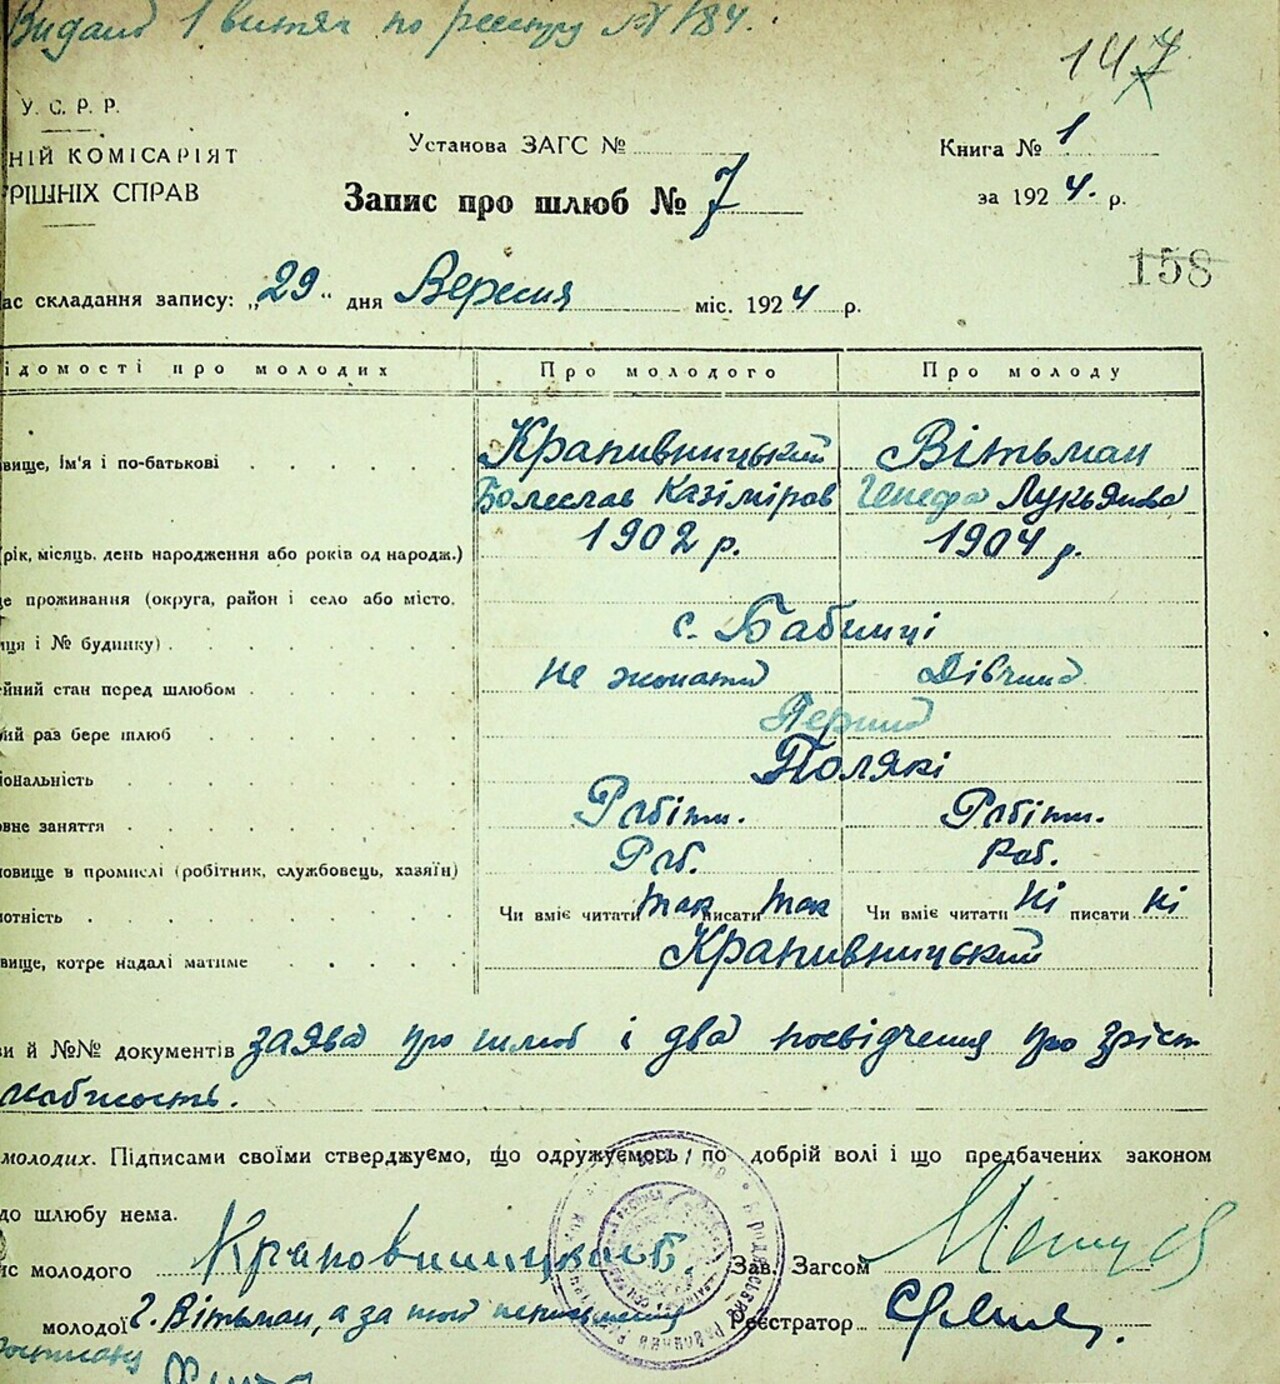 Видано 1 витяг по реєстру №1/84.
147
У. С. Р. Р.
НІЙ КОМІСАРІЯТ
РІШНІХ СПРАВ
Установа ЗАГС №
Книга № 1
Запис про шлюб № 7
за 1924. р.
158
ас складання запису: „29“ дня Вересня міс. 1924 р.
ідомості про молодих Про молодого Про молоду
вище, Ім'я і по-батькові Крапивницький Вітьман
Болеслав Казіміров Лукьянова
(рік, місяць, день народження або років од народж.) 1902 р. 1904 р.
це проживання (округа, район і село або місто.
иця і № будинку) с. Бабинці
йний стан перед шлюбом не жонатий Дівчина
ий раз бере шлюб Перший
іональність Полякі
овне заняття Робітн. Робітн.
овище в промислі (робітник, службовець, хазяїн) Роб. Роб.
отність Чи вміє читати так писати так Чи вміє читати ні писати ні
вище, котре надалі матиме Крапивницький
ви й №№ документів заява про шлюб і два посвідчення про зріст
молодих. Підписами своїми стверджуємо, що одружуємось по добрій волі і що предбачених законом
до шлюбу нема.
ис молодого Зав. Загсом
молодої Г. Вітьман, а за той неписьменну Реєстратор